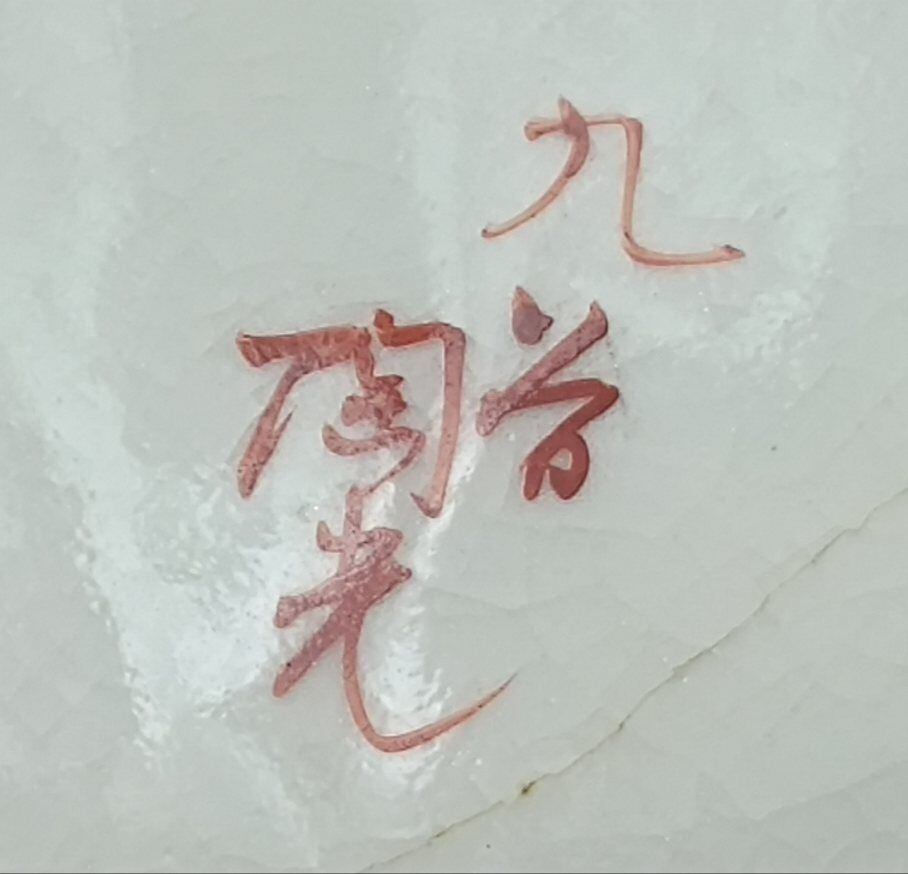 九谷
陶光